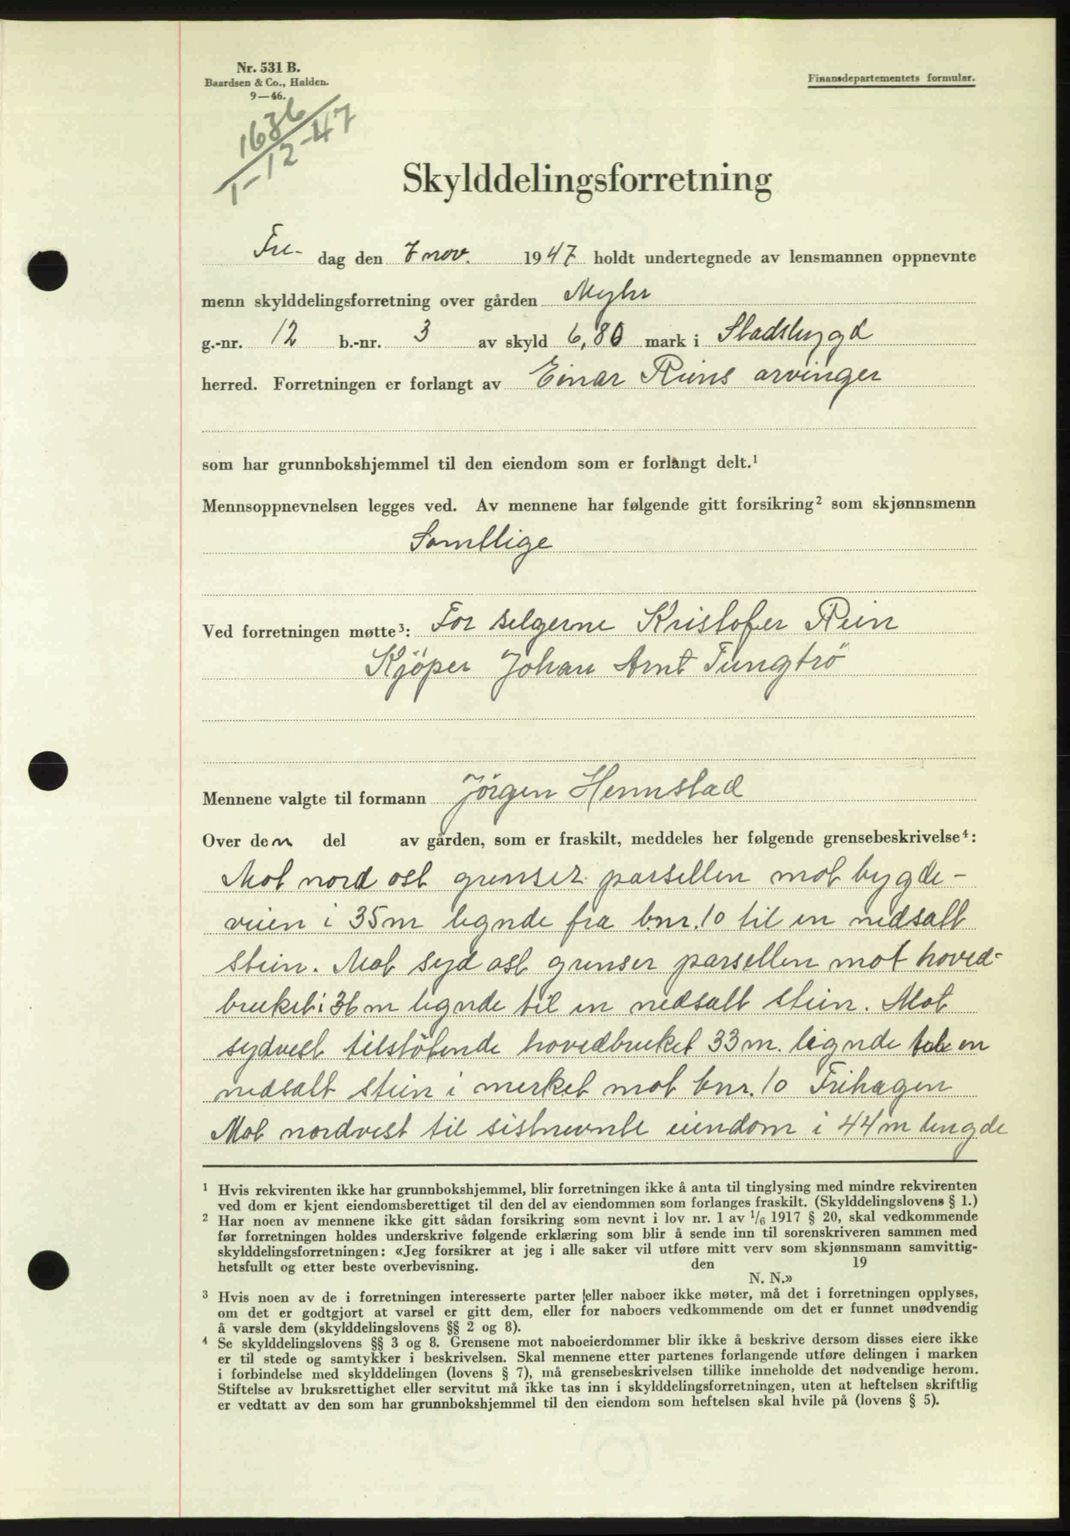 Nr. 531 B.
Baardsen & Co., Halden.
9—46.
Finansdepartementets formular.
1636
1-12-47
Skylddelingsforretning
Fre- dag den 7 nov. 1947 holdt undertegnede av lensmannen oppnevnte
menn skylddelingsforretning over gården Myhr
g.-nr. 12 b.-nr. 3 av skyld 6,80 mark i Stadsbygd
herred. Forretningen er forlangt av Einar Reins arvinger
som har grunnbokshjemmel til den eiendom som er forlangt delt.¹
Mennsoppnevnelsen legges ved. Av mennene har følgende gitt forsikring² som skjønnsmenn
Samtlige
Ved forretningen møtte³: For selgerne Kristofer Rein
Kjöper Johan Arnt Tungtrö
Mennene valgte til formann Jörgen Hennstad
Over den del av gården, som er fraskilt, meddeles her følgende grensebeskrivelse⁴:
Mot nord ost grenser parsellen mot bygde-
veien i 35m legnde fra b.nr. 10 til en nedsatt
stein. Mot syd ost grenser parsellen mot hoved-
bruket i 36 m legnde til en nedsatt stein. Mot
sydvest tilstötende hovedbruket 33 m. legnde til en
nedsatt stein i merket mot bnr. 10 Frihagen
Mot nordvest til sistnevnte eiendom i 44 m lengde
¹ Hvis rekvirenten ikke har grunnbokshjemmel, blir forretningen ikke å anta til tinglysing med mindre rekvirenten
ved dom er kjent eiendomsberettiget til den del av eiendommen som forlanges fraskilt. (Skylddelingslovens § 1.)
² Har noen av mennene ikke gitt sådan forsikring som nevnt i lov nr. 1 av 1/6 1917 § 20, skal vedkommende
før forretningen holdes underskrive følgende erklæring som blir å sende inn til sorenskriveren sammen med
skylddelingsforretningen: «Jeg forsikrer at jeg i alle saker vil utføre mitt verv som skjønnsmann samvittig-
hetsfullt og etter beste overbevisning. den 19
N. N.»
³ Hvis noen av de i forretningen interesserte parter eller naboer ikke møter, må det i forretningen opplyses,
om det er godtgjort at varsel er gitt dem, eller for naboers vedkommende om det er funnet unødvendig
å varsle dem (skylddelingslovens §§ 2 og 8).
⁴ Se skylddelingslovens §§ 3 og 8. Grensene mot naboeierdommer blir ikke å beskrive dersom disses eiere ikke
er til stede og samtykker i beskrivelsen. Skal mennene etter partenes forlangende utføre delingen i marken
i forbindelse med skylddelingen (lovens § 7), må grensebeskrivelsen tillike inneholde det nødvendige herom.
Stiftelse av bruksrettighet eller servitut må ikke tas inn i skylddelingsforretningen, uten at heftelsen skriftlig
er vedtatt av den som har grunnbokshjemmel til den eiendom som heftelsen skal hvile på (lovens § 5).